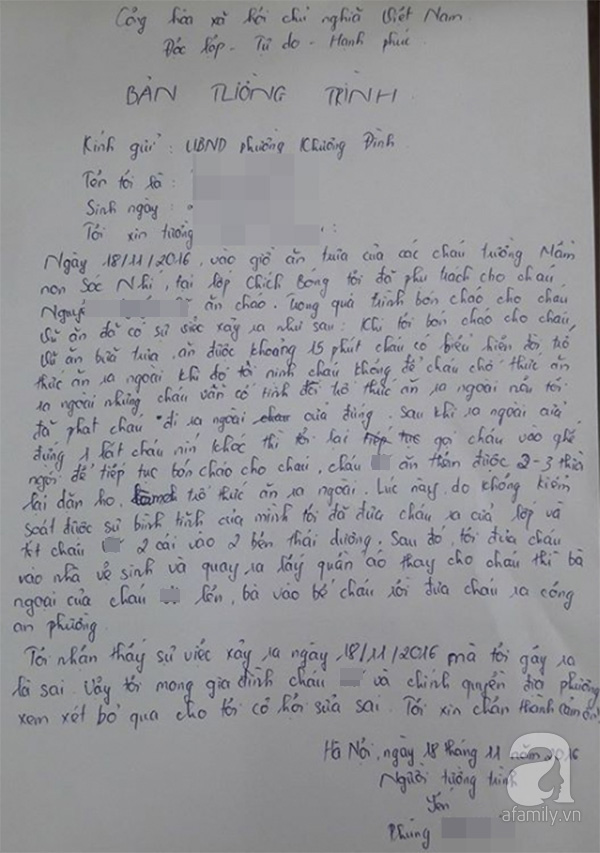 Cộng hòa xã hội chủ nghĩa Việt Nam
Độc lập - Tự do - Hạnh phúc
BẢN TƯỜNG TRÌNH
Kính gửi : UBND phường Khương Đình
Tên tôi là :
Sinh ngày :
Tôi xin tường :
Ngày 18/11/2016, vào giờ ăn trưa của các cháu trường Mầm
non Sóc Nhí, tại lớp Chích Bông tôi đã phụ trách cho cháu
Nguyễ ăn cháo. Trong quá trình bón cháo cho cháu
ăn đã có sự việc xảy ra như sau : Khi tôi bón cháo cho cháu
ăn bữa trưa, ăn được khoảng 15 phút cháu có biểu hiện đòi trớ
thức ăn ra ngoài khi đó tôi nịnh cháu không để cháu chớ thức ăn
ra ngoài nhưng cháu vẫn cố tình đòi trớ thức ăn ra ngoài nên tôi
đã phạt cháu đi ra ngoài cửa đứng. Sau khi ra ngoài cửa
đứng 1 lát cháu nín khóc thì tôi lại tiếp tục gọi cháu vào ghế
ngồi để tiếp tục bón cháo cho cháu, cháu ăn thêm được 2-3 thìa
lại dặn ho, trớ thức ăn ra ngoài. Lúc này, do không kiểm
soát được sự bình tĩnh của mình tôi đã đưa cháu ra cửa lớp và
tát cháu 2 cái vào 2 bên thái dương. Sau đó, tôi đưa cháu
vào nhà vệ sinh và quay ra lấy quần áo thay cho cháu thì bà
ngoại của cháu lên, bà vào bế cháu rồi đưa cháu ra công
an phường.
Tôi nhận thấy sự việc xảy ra ngày 18/11/2016 mà tôi gây ra
là sai. Vậy tôi mong gia đình cháu và chính quyền địa phương
xem xét bỏ qua cho tôi cơ hội sửa sai. Tôi xin chân thành cảm ơn!
Hà Nội, ngày 18 tháng 11 năm 2016
Người tường trình
Yến
Phùng
a
afamily.vn